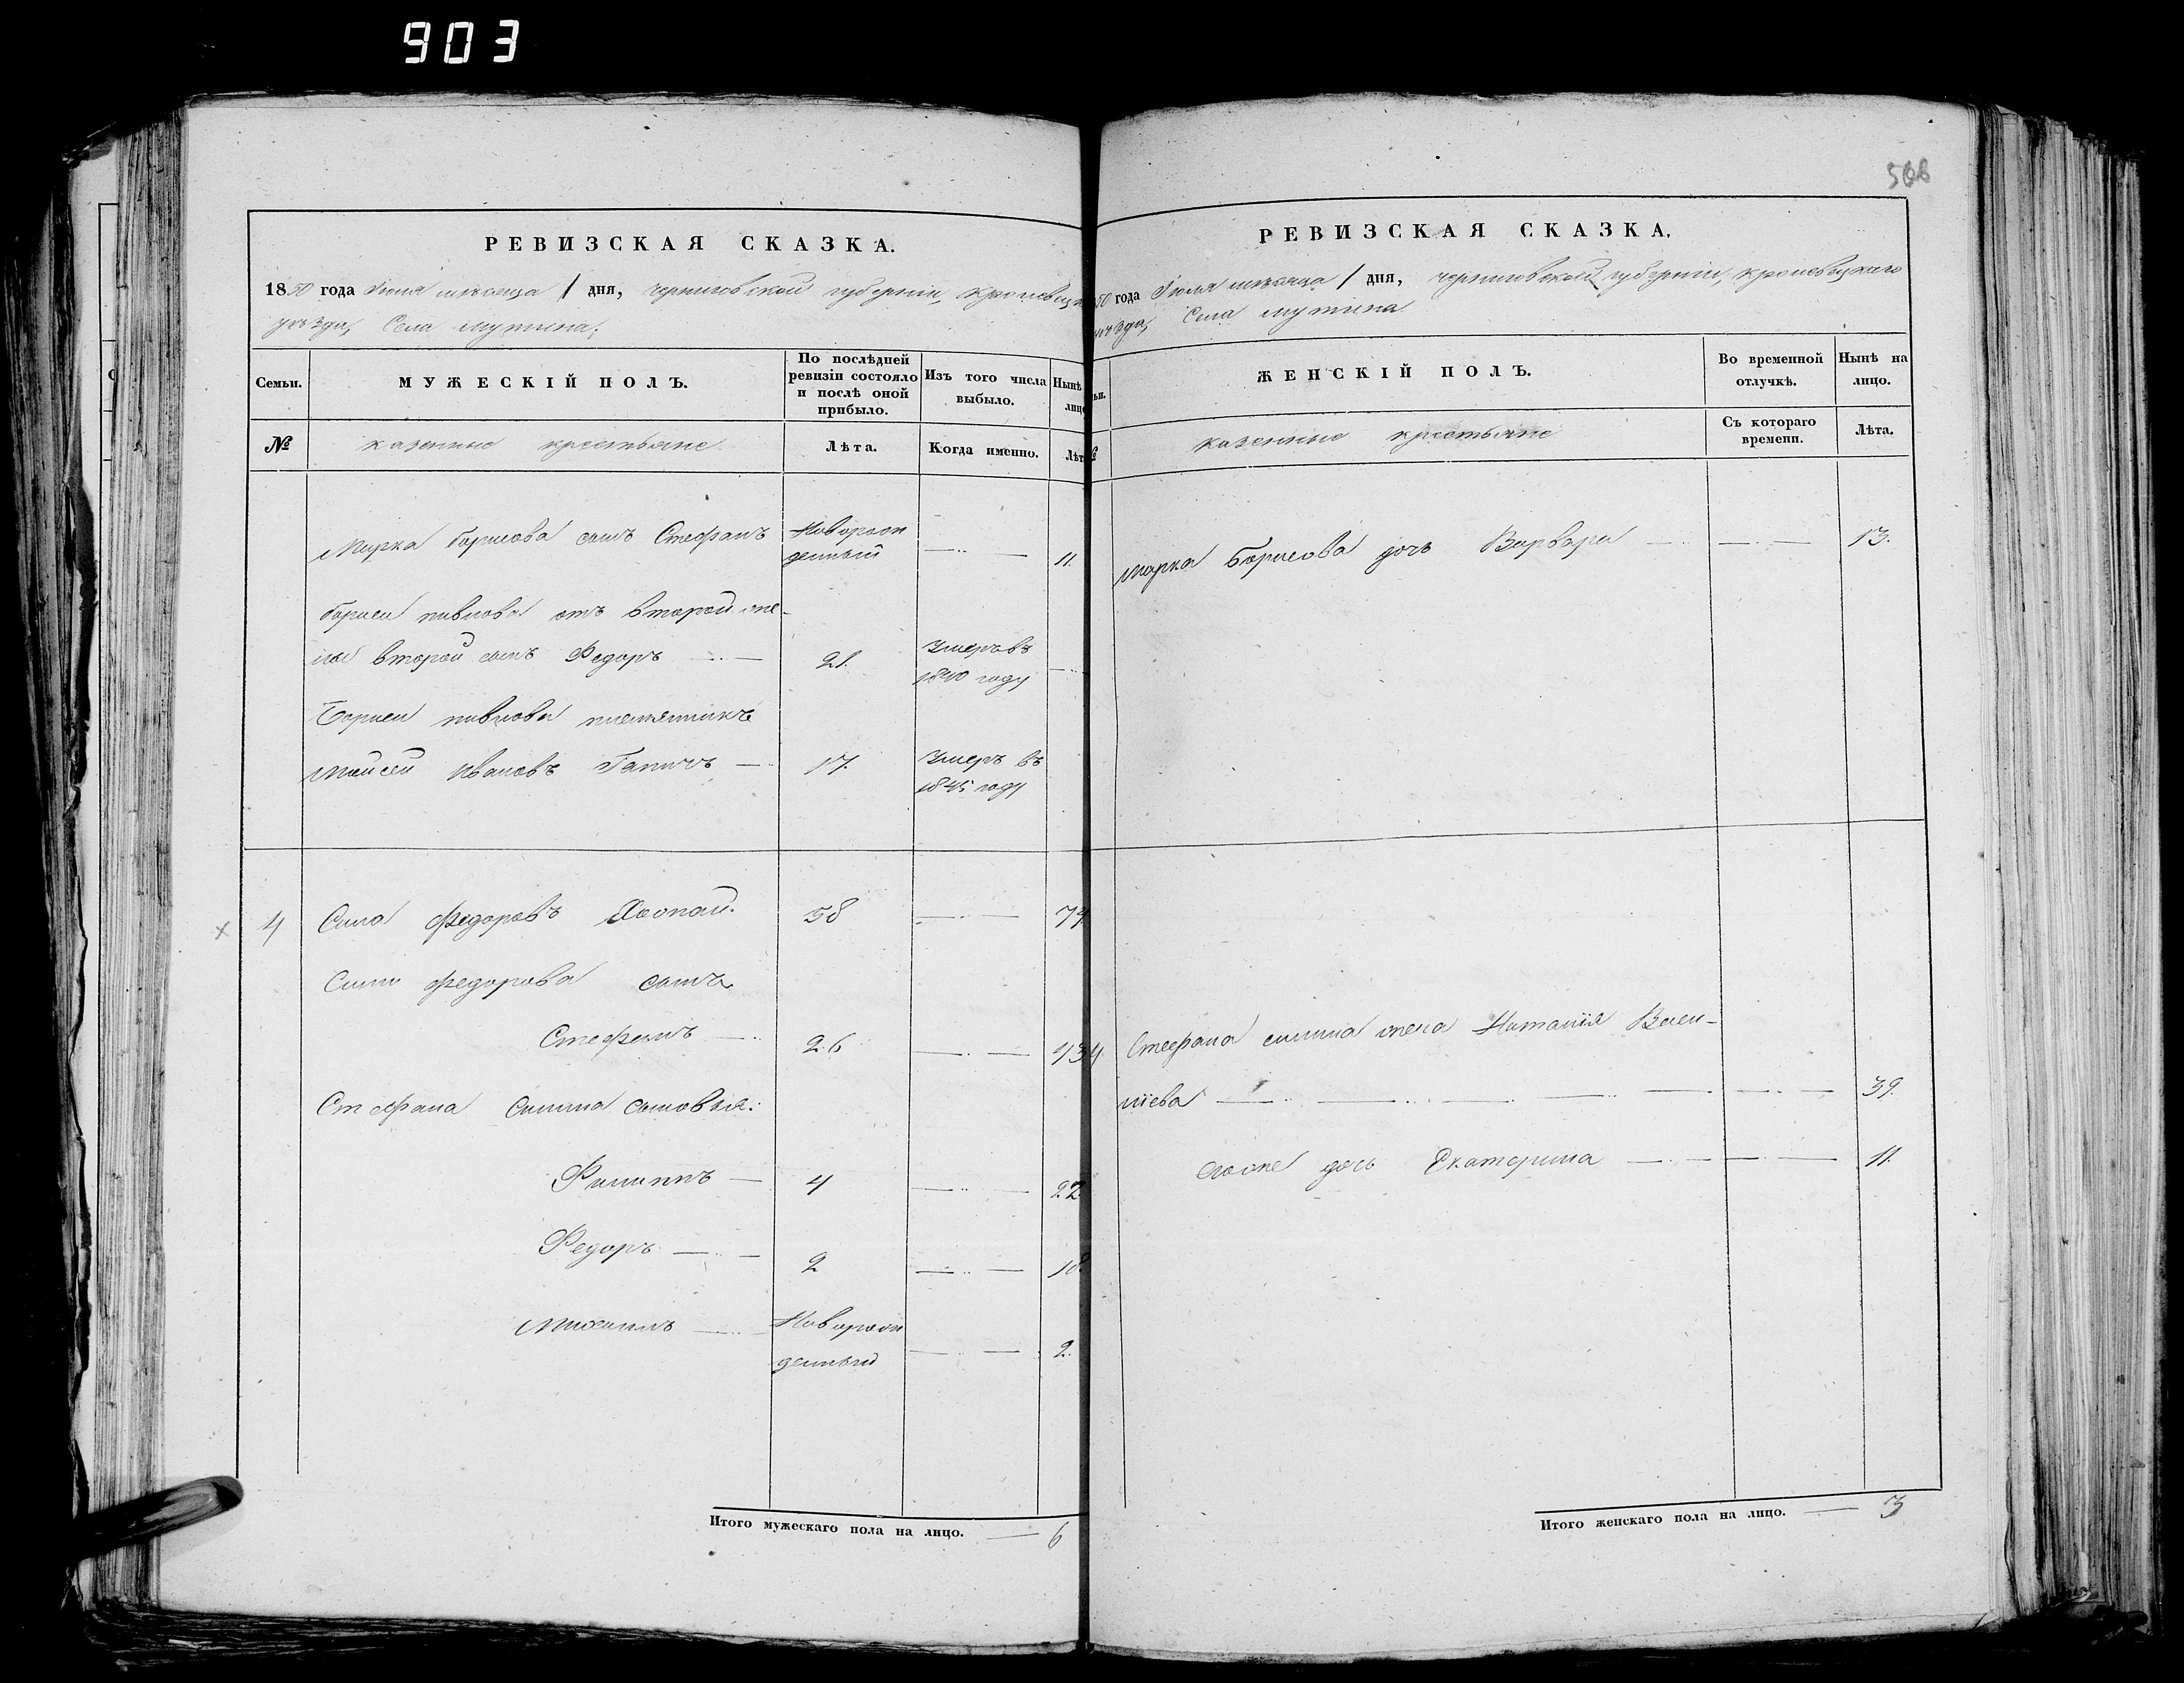 903
568
РЕВИЗСКАЯ СКАЗКА.
1850 года Июля мѣсяца 1 дня, черниговской губерніи, кролевецк
уѣзда, Села мутина,
Семьи.
МУЖЕСКІЙ ПОЛЪ.
По послѣдней ревизіи состояло и послѣ оной прибыло.
Изъ того числа выбыло.
Нынѣ лицо
№
казенные крестьяне
Лѣта.
Когда именно.
Лѣт
Марка борисова сынъ Стефанъ Новорож 11.
денный
бориса павлова отъ второй же-
ны второй сынъ Федоръ 21. Умеръ въ
1840 году
Бориса павлова племянникъ
Моисей Ивановъ 17. Умеръ въ
1845 году
4 Сила Федоровъ 58 74
Силы Федорова сынъ
Стефанъ 26 43
Стефана силина сыновья:
Филиппъ 4 22
Федоръ 2 18.
Михаилъ Новорож 2.
денный
Итого мужескаго пола на лицо. 6
РЕВИЗСКАЯ СКАЗКА.
50 года Июля мѣсяца 1 дня, черниговской губерніи, кролевецкаго
уѣзда, Села мутина
ьи.
ЖЕНСКІЙ ПОЛЪ.
Во временной отлучкѣ.
Нынѣ на лицо.
№
казенные крестьяне
Съ котораго времени.
Лѣта.
Марка Борисова дочь Варвара 13.
4 Стефана силина жена Наталія Васи-
ліева 39.
его же дочь Екатерина 11.
Итого женскаго пола на лицо. 3